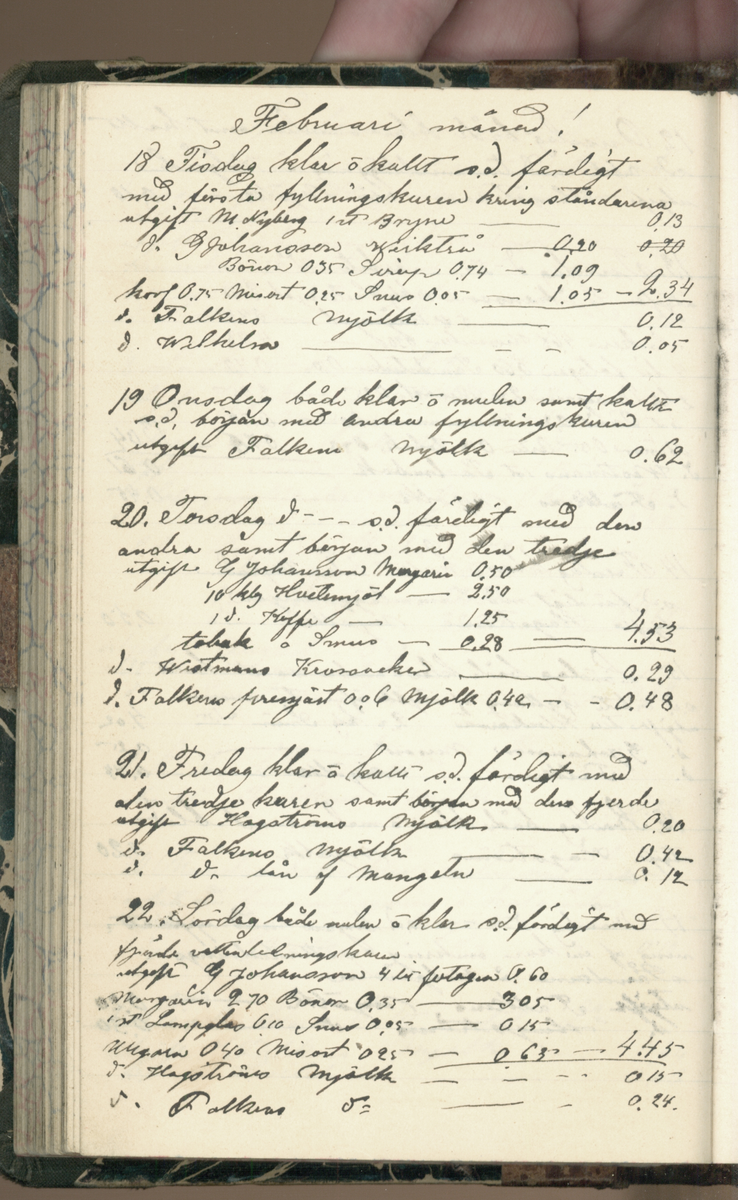 Februari månad!
18 Tisdag klar ö kallt s.d. färdigt
med första fyllningskuren kring ståndarna
utgift M. Nyberg 1 st Bryne — 0,13
d. G Johansson Wirktrå — 0,20 0,20
Bönor 0 35 Sirap 0.74 — 1.09
korf 0.75 Misost 0.25 Snus 0.05 — 1.05 — 2.34
d. Falkens Mjölk — 0.12
d. Wilhelm — - - 0.05
19 Onsdag både klar ö mulen samt kallt
s.d. början med andra fyllningskuren
utgift Falkens Mjölk — 0.62
20. Torsdag d - - - s.d. färdigt med den
andra samt början med den tredje
utgift G Johansson Margarin 0.50
10 klg Hvetemjöl — 2.50
1 d. Kaffe — 1.25
tobak o Snus — 0.28 — 4.53
d. Wistmans — 0.29
d. Falkens 0.06 Mjölk 0.42 - - 0.48
21. Fredag klar ö kallt s.d. färdigt med
den tredje kuren samt början med den fjerde
utgift Hagströms Mjölk — 0.20
d. Falkens Mjölk — - 0.42
d. d. lån af Mangeln — 0.12
22. Lördag både mulen ö klar s.d. färdigt med
fjärde
utgift G Johansson 4 lit fotogen 0.60
Margarin 2 70 Bönor 0.35 — 3 05
1 st Lampglas 0.10 Snus 0.05 — 0 15
0 40 Misost 0 25 — 0 65 — 4.45
d. Hagströms Mjölk — - - - 0 15
d. Falkens d= — - 0.24.